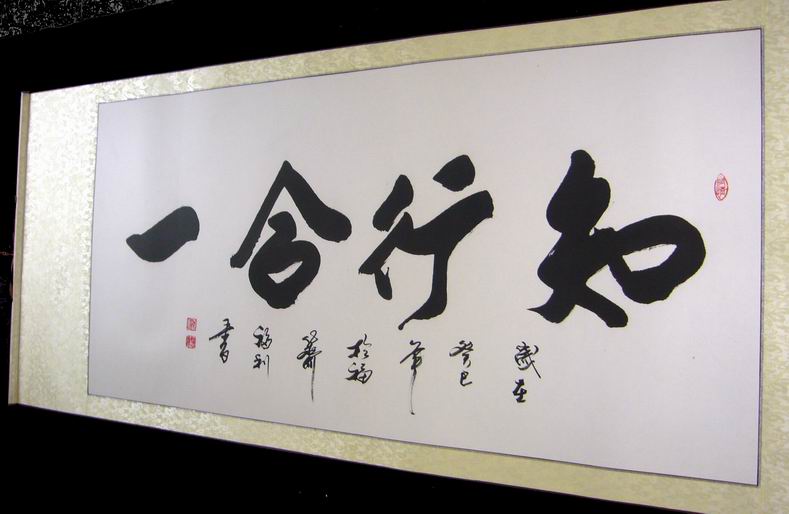 知行合一
歲在癸巳年於福
福利書